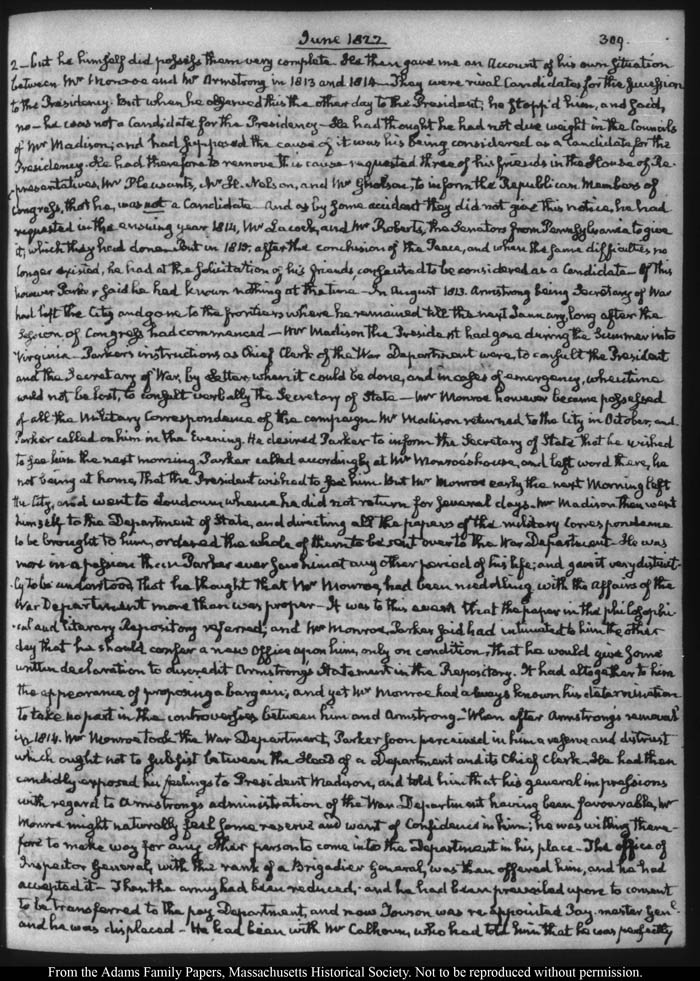 June 1822
309.
2 — but he himself did possess them very complete. He then gave me an Account of his own Situation
between Mr Monroe and Mr Armstrong in 1813 and 1814 — They were rival Candidates for the Succession
to the Presidency. But when he observed this the other day to the President, he stopp'd him, and said,
no — he was not a Candidate for the Presidency — He had thought he had not due weight in the Councils
of Mr Madison; and had supposed the cause of it was his being considered as a Candidate for the
Presidency. He had therefore to remove this cause requested three of his friends in the House of Re-
presentatives, Mr Pleasants, Mr H. Nelson, and Mr Gholson, to inform the Republican Members of
Congress, that he, was not a Candidate — And as by some accident they did not give this notice, he had
requested in the ensuing year 1814, Mr Lacock, and Mr Roberts, the Senators from Pennsylvania to give
it, which they had done — But in 1815. after the conclusion of the Peace, and when the same difficulties no
longer existed, he had at the solicitation of his friends consented to be considered as a Candidate — Of this
however Parker said he had known nothing at the time — In August 1813. Armstrong being Secretary of War
had left the City and gone to the frontiers where he remained till the next January, long after the
Session of Congress had commenced — Mr Madison the President had gone during the Summer into
Virginia — Parker's instructions as Chief Clerk of the War Department were, to consult the President
and the Secretary of War, by Letter, when it could be done, and in cases of emergency, when time
could not be lost, to consult verbally the Secretary of State — Mr Monroe however became possessed
of all the Military Correspondence of the campaign. Mr Madison returned to the City in October, and
Parker called on him in the Evening. He desired Parker to inform the Secretary of State that he wished
to see him the next morning. Parker called accordingly at Mr Monroe's house, and left word there, he
not being at home, that the President wished to see him. But Mr Monroe early the next Morning left
the City, and went to Loudoun, whence he did not return for several days. Mr Madison then went
himself to the Department of State, and directing all the papers of the military Correspondence
to be brought to him, ordered the whole of them to be sent over to the War Department — He was
more in a passion than Parker ever saw him at any other period of his life; and gave it very distinct-
ly to be understood, that he thought that Mr Monroe, had been meddling with the affairs of the
War Department more than was proper — It was to this event that the paper in the philosophi-
cal and literary Repository referred; and Mr Monroe, Parker said had intimated to him the other
day that he should confer a new Office upon him, only on condition, that he would give some
written declaration to discredit Armstrong's Statement in the Repository. It had altogether to him
the appearance of proposing a bargain; and yet Mr Monroe had always known his determination
to take no part in the controversies between him and Armstrong — When after Armstrong's removal
in 1814. Mr Monroe took the War Department, Parker soon perceived in him a reserve and distrust
which ought not to subsist between the Head of a Department and its Chief Clerk. He had then
candidly exposed his feelings to President Madison, and told him that his general impressions
with regard to Armstrong's administration of the War Department having been favourable, Mr
Monroe might naturally feel some reserve and want of Confidence in him; he was willing there-
fore to make way for any other person to come into the Department in his place — The office of
Inspector General, with the rank of a Brigadier General, was then offered him, and he had
accepted it — Then the army had been reduced, and he had been prevailed upon to consent
to be transferred to the pay Department, and now Towson was re-appointed Pay-master Genl
and he was displaced — He had been with Mr Calhoun, who had told him that he was perfectly
From the Adams Family Papers, Massachusetts Historical Society. Not to be reproduced without permission.